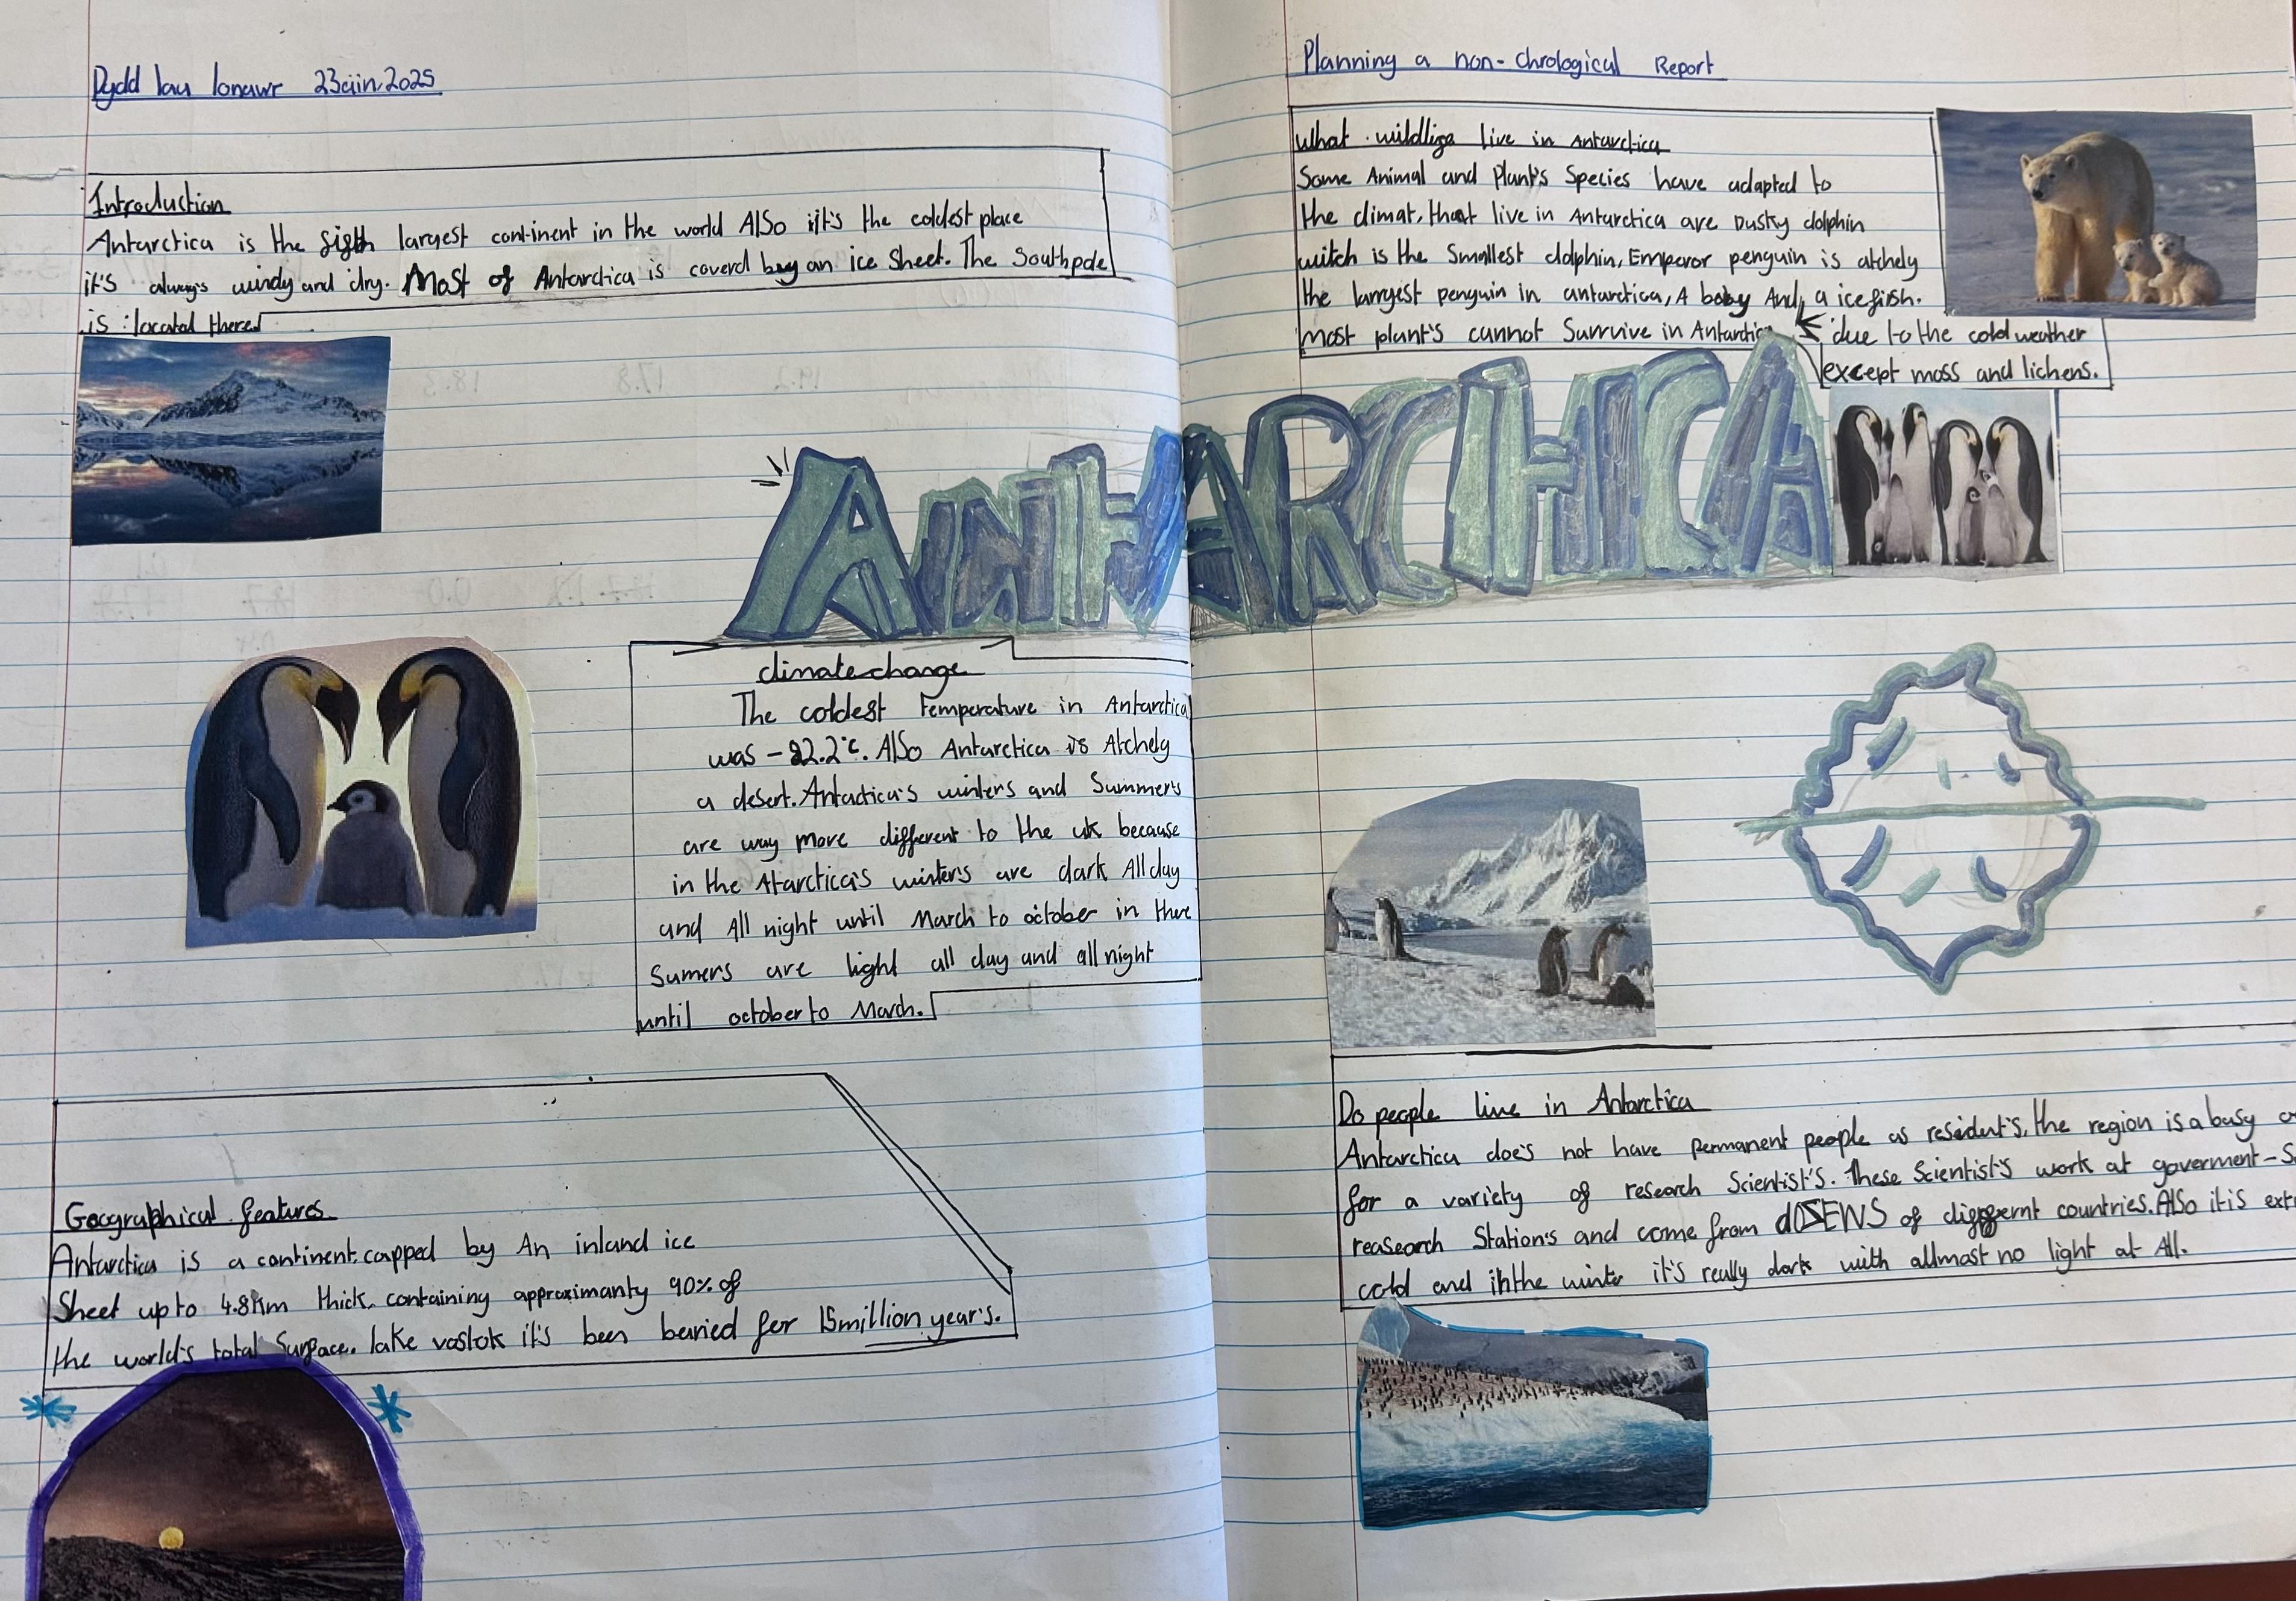 Dydd Iau Ionawr 23ain, 2025
Introduction
Antarctica is the fifth largest continent in the world Also it's the coldest place
it's always windy and dry. Most of Antarctica is coverd by an ice Sheet. The South pole
is located there
climate change
The coldest temperature in Antarctica
was - 92.2°c. Also Antarctica is Atchely
a desert. Antactica's winters and Summer's
are way more different to the uk because
in the Atarctica's winter's are dark All day
and All night until March to october in there
Sumers are light all day and all night
until october to March.
Geographical features
Antarctica is a continent, capped by An inland ice
Sheet up to 4.8km thick, containing approximanty 90% of
the world's total Surface. lake vostok it's been buried for 15 million year's.
Planning a non-chrological Report
What wildlife live in Antarctica
Some Animal and Plant's Species have adapted to
the climat, that live in Antarctica are Dusky dolphin
witch is the Smallest dolphin, Emperor penguin is atchely
the largest penguin in antarctica, A baby And a icefish.
most plant's cannot Survive in Antarctica
due to the cold weather
except moss and lichens.
ANTARCTICA
Do people live in Antarctica
Antarctica doe's not have permanent people as resident's, the region is a busy
for a variety of research Scientist's. These Scientist's work at goverment-
reasearch Station's and come from dOZENS of differnt countries. Also it is
cold and in the winter it's really dark with allmost no light at All.